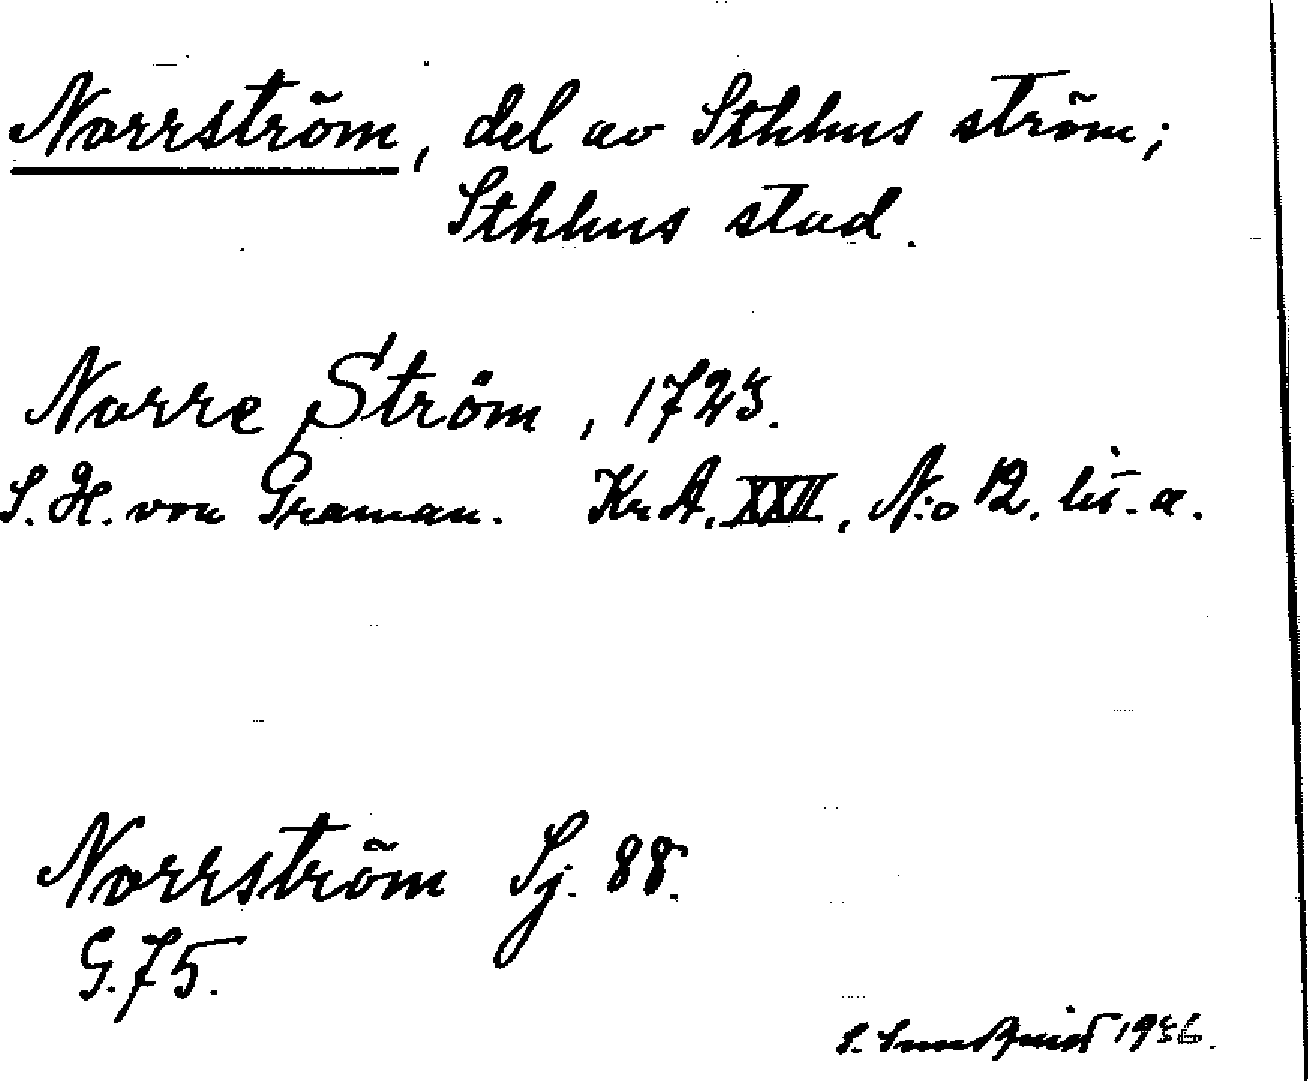 Norrström, del av Sthlms ström;
Sthlms stad.
Norre Ström, 1723.
S. H. von Graman. Kr.A. XXII, N:o 12. lit. a.
Norrström Sj. 88.
G. 75.
S. Sundquist 1936.